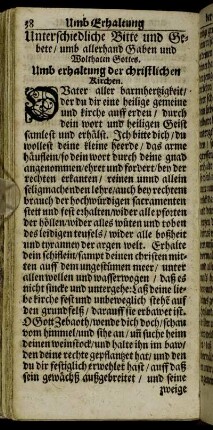 38 Umb Erhaltung
Unterschiedliche Bitte und Ge-
bete / umb allerhand Gaben und
Wolthaten Gottes.
Umb erhaltung der christlichen
Kirchen.
O Vater aller barmhertzigkeit /
der du dir eine heilige gemeine
und kirche auff erden / durch
dein wort und heiligen Geist
samlest und erhälst. Ich bitte dich / du
wollest deine kleine heerde / das arme
häufflein / so dein wort durch deine gnad
angenommen / ehret und fordert / bey der
rechten erkanten / reinen unnd allein
seligmachenden lehre / auch bey rechtem
brauch der hochwürdigen sacramenten
stett und fest erhalten / wider alle pforten
der höllen / wider alles wüten und toben
des leidigen teufels / wider alle boßheit
und tyranney der argen welt. Erhalte
dein schifflein / sampt deinen christen mit-
ten auff dem ungestümen meer / unter
allen wellen und wasserwogen / daß es
nicht sincke und untergehe: Laß deine lie-
be kirche fest und unbeweglich stehs auf
den grundfelß / darauff sie erbawet ist.
O Gott Zebaoth / wende dich doch / schau
vom himmel / und sihe an / uñ suche heim
deinen weinstock / und halte ihn im baw /
den deine rechte gepflantzet hat / und den
du dir festiglich erwehlet hast / auff daß
sein gewächß außgebreitet / und seine
zweige